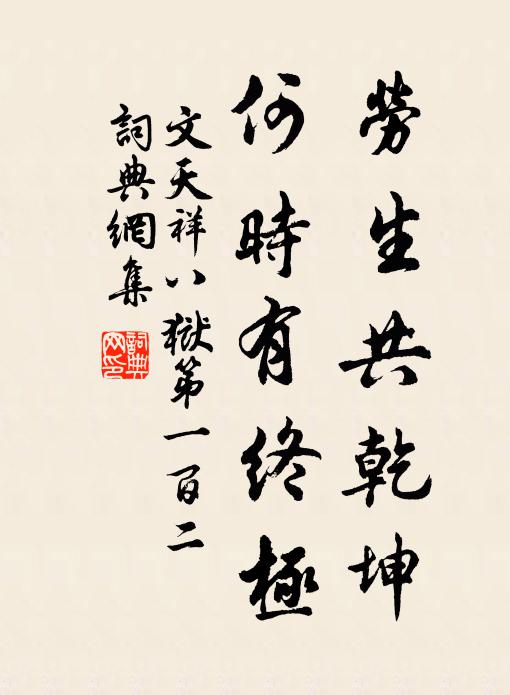 勞生共乾坤
何時有終極
文天祥入獄第一百二
詞典網集
詞典網印